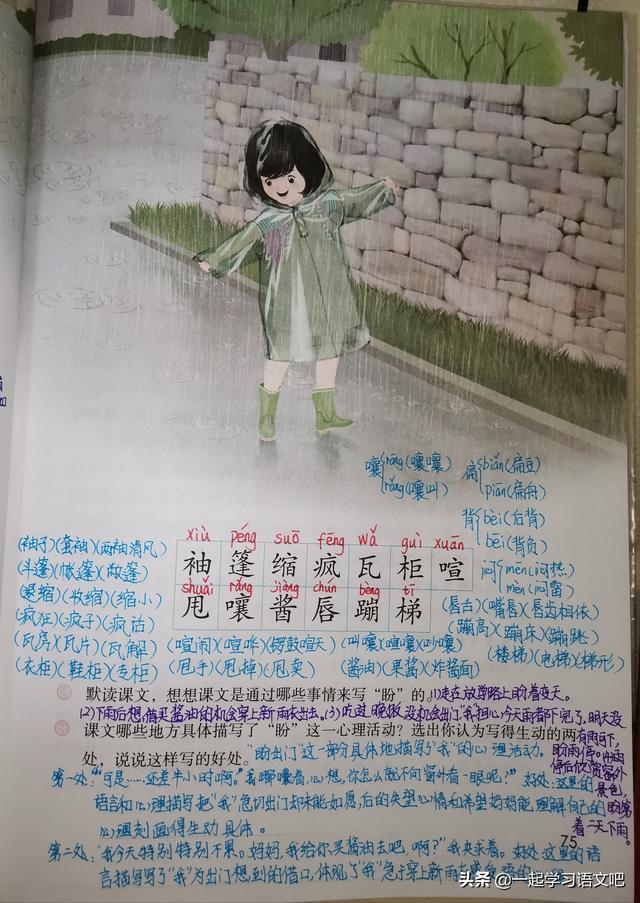 嚷 rāng(嚷嚷)
rǎng(嚷叫)
扁 biǎn(扁豆)
piān(扁舟)
背 bèi(后背)
bēi(背负)
闷 mēn(闷热)
mèn(闷雷)
xiù péng suō fēng wǎ guì xuān
袖 篷 缩 疯 瓦 柜 喧
shuǎi rǎng jiàng chún bèng tī
甩 嚷 酱 唇 蹦 梯
(袖子)(套袖)(两袖清风)
(斗篷)(帐篷)(敞篷)
(紧缩)(收缩)(缩小)
(疯狂)(疯子)(疯话)
(瓦房)(瓦片)(瓦解)
(衣柜)(鞋柜)(专柜)
(喧闹)(喧哗)(锣鼓喧天)
(甩手)(甩掉)(甩卖)
(叫嚷)(喧嚷)(吵嚷)
(酱油)(果酱)(炸酱面)
(唇舌)(嘴唇)(唇齿相依)
(蹦高)(蹦床)(蹦跳)
(楼梯)(电梯)(梯形)
默读课文,想想课文是通过哪些事情来写“盼”的。(1)走在放学路上盼着变天。
(2)下雨后想借买酱油的机会穿上新雨衣出去。(3)吃过晚饭,没机会出门,“我”担心今天雨都下完了,明天没有雨可下,
盼雨停。(4)雨停后欣赏窗外景色,盼第二天下雨。
课文哪些地方具体描写了“盼”这一心理活动?选出你认为写得生动的两
处,说说这样写的好处。“盼出门”这一部分具体地描写了“我”的心理活动。
第一处:“可是……还差半小时啊。”我嘟囔着,心想,你怎么就不向窗外看一眼呢?”好处:这里的
语言和心理描写把“我”急切出门却未能如愿,后的失望心情和希望妈妈能理解自己的
心理刻画得生动具体。
第二处:“我今天特别特别不累。妈妈,我给你买酱油去吧,啊?”我央求着。好处:这里的语
言描写写了“我”为出门想到的借口,体现了“我”急于穿上新雨衣
75
头条 @一起学习语文吧